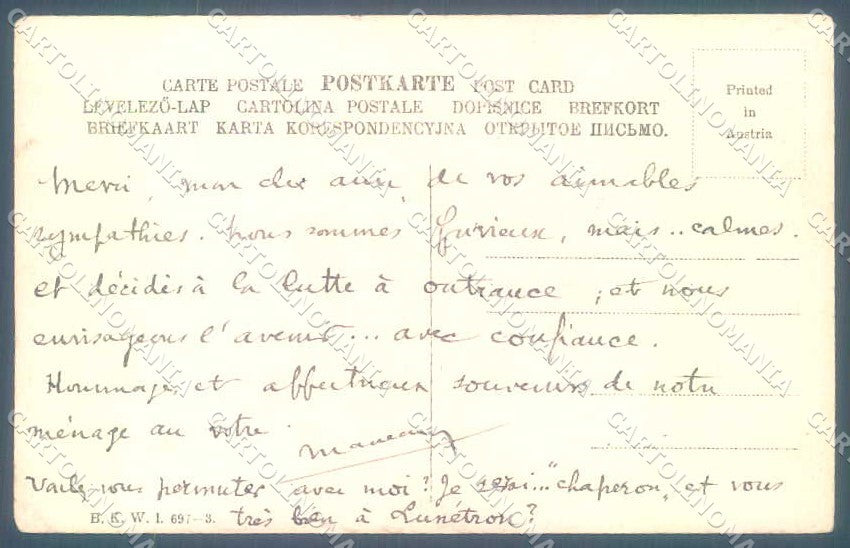 CARTE POSTALE POSTKARTE POST CARD
LEVELEZŐ-LAP CARTOLINA POSTALE DOPISNICE BREFKORT
BRIEFKAART KARTA KORESPONDENCYJNA ОТКРЫТОЕ ПИСЬМО.
Printed
in
Austria
Merci, mon cher ami, de vos aimables
sympathies. Nous sommes furieux, mais.. calmes.
et décidés à la lutte à outrance ; et nous
envisageons l'avenir... avec confiance.
Hommages et affectueux souvenirs de notre
ménage au vôtre.
Voulez-vous permuter avec moi ? Je serai... "chaperon" et vous
très bien à ?
B. K. W. I. 697-3.
CARTOLINOMANIA